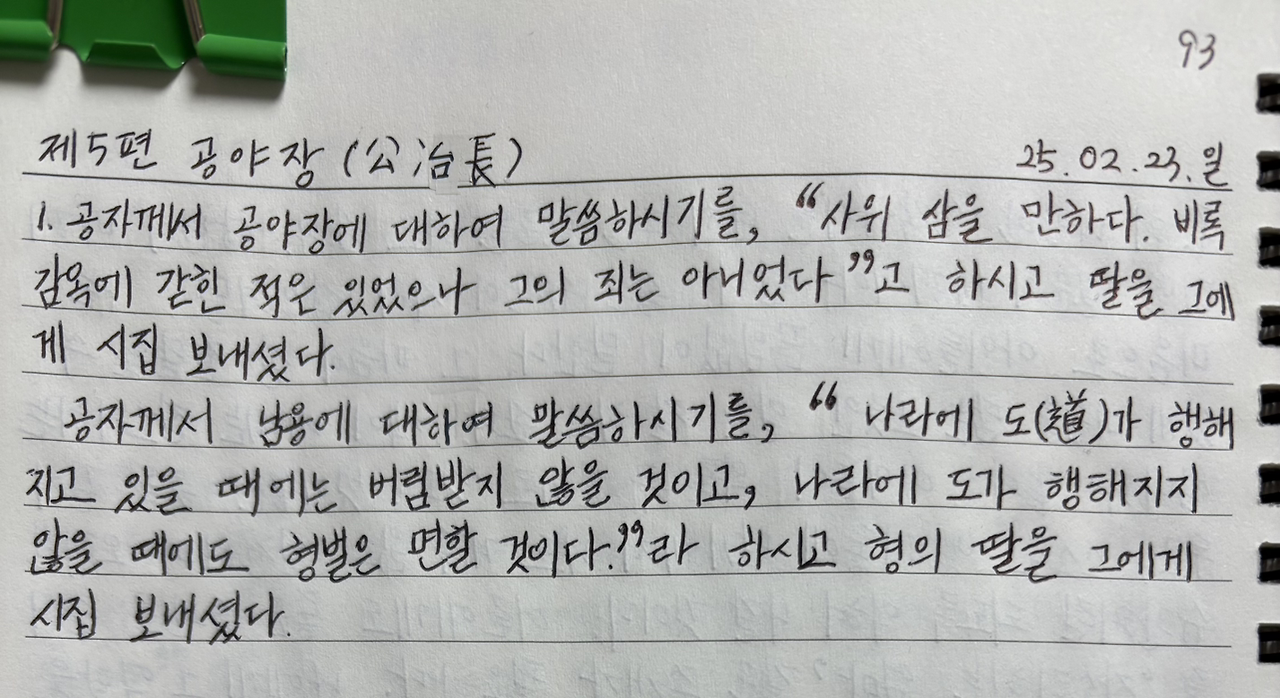 93
제5편 공야장(公冶長) 25.02.23.일
1. 공자께서 공야장에 대하여 말씀하시기를, “사위 삼을 만하다. 비록
감옥에 갇힌 적은 있었으나 그의 죄는 아니었다”고 하시고 딸을 그에
게 시집 보내셨다.
공자께서 남용에 대하여 말씀하시기를, “나라에 도(道)가 행해
지고 있을 때에는 버림받지 않을 것이고, 나라에 도가 행해지지
않을 때에도 형벌은 면할 것이다.”라 하시고 형의 딸을 그에게
시집 보내셨다.